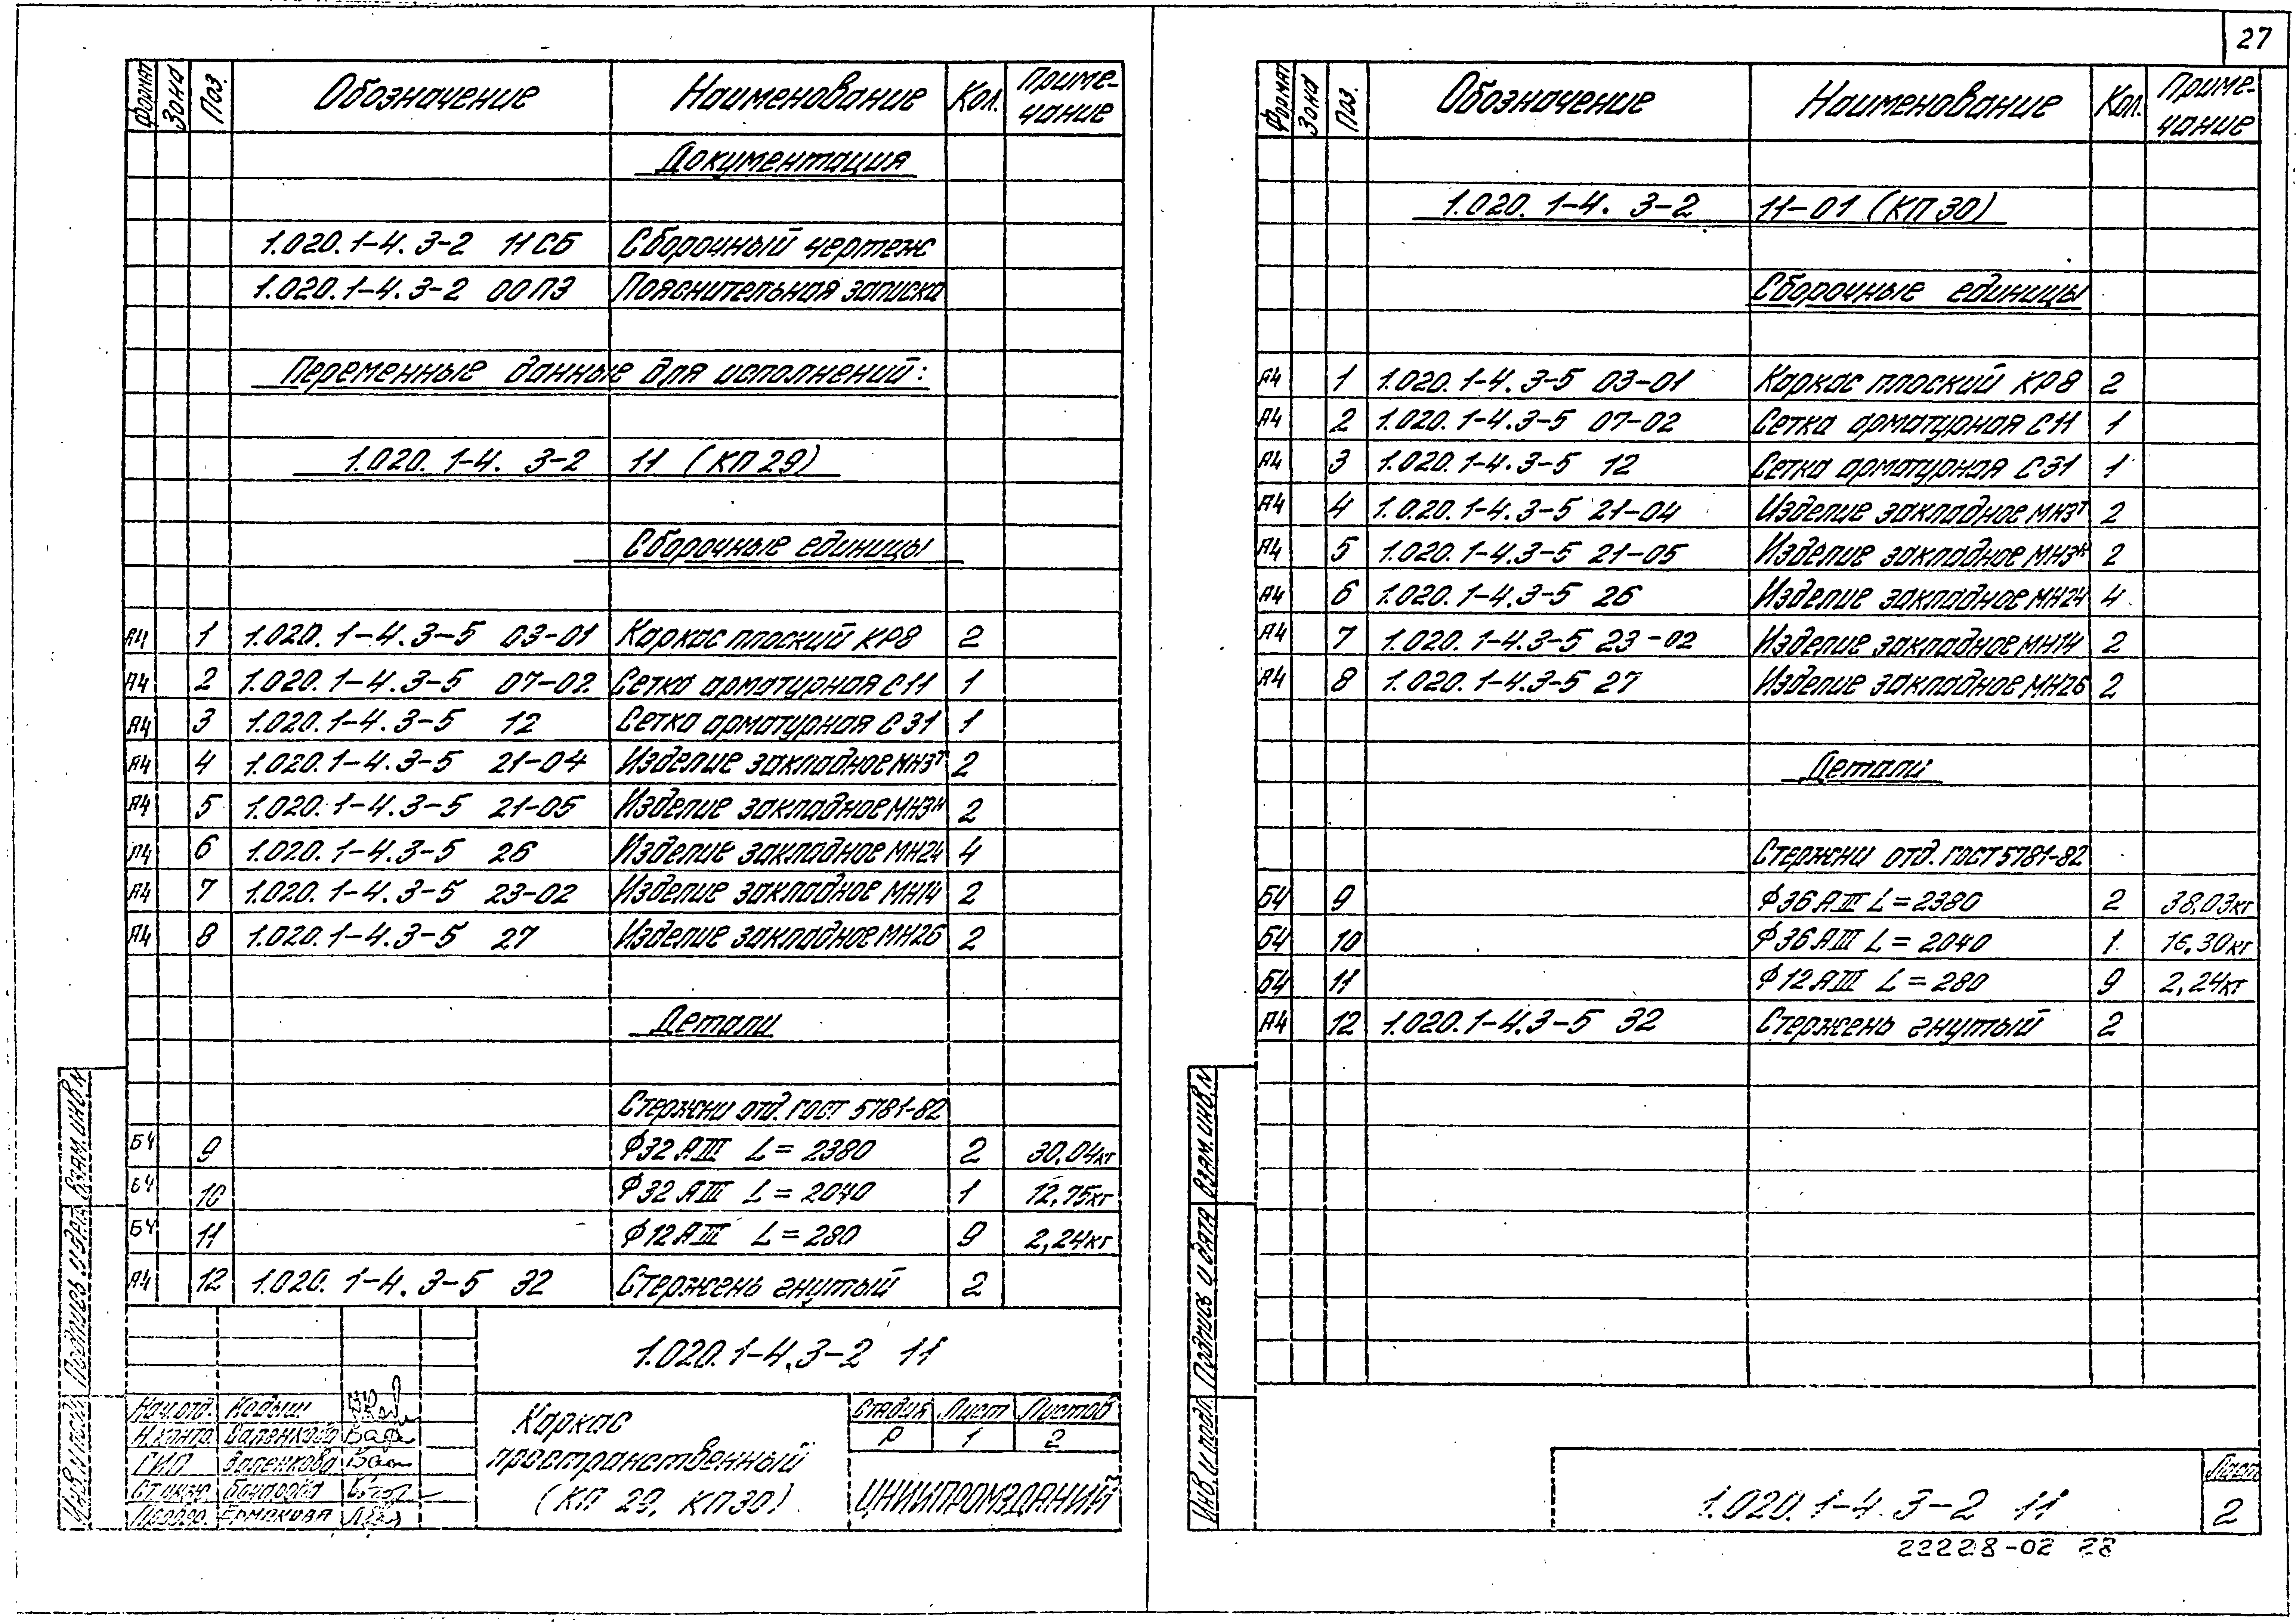 27
Формат Зона Поз. Обозначение Наименование Кол. Приме-
чание
Документация
1.020.1-4.3-2 11СБ Сборочный чертеж
1.020.1-4.3-2 00ПЗ Пояснительная записка
Переменные данные для исполнений:
1.020.1-4.3-2 11 (КП29)
Сборочные единицы
А4 1 1.020.1-4.3-5 03-01 Каркас плоский КР8 2
А4 2 1.020.1-4.3-5 07-02 Сетка арматурная С11 1
А4 3 1.020.1-4.3-5 12 Сетка арматурная С31 1
А4 4 1.020.1-4.3-5 21-04 Изделие закладное МН3т 2
А4 5 1.020.1-4.3-5 21-05 Изделие закладное МН3н 2
А4 6 1.020.1-4.3-5 26 Изделие закладное МН24 4
А4 7 1.020.1-4.3-5 23-02 Изделие закладное МН14 2
А4 8 1.020.1-4.3-5 27 Изделие закладное МН26 2
Детали
Стержни отд. ГОСТ 5781-82
БЧ 9 Ф32 АIII L=2380 2 30,04кг
БЧ 10 Ф32 АIII L=2040 1 12,75кг
БЧ 11 Ф12 АIII L=280 9 2,24кг
А4 12 1.020.1-4.3-5 32 Стержень гнутый 2
1.020.1-4.3-2 11
Нач.отд. Кодыш
Н.контр. Валенкова
ГИП Валенкова
Ст.инж. Бочарова
Провер. Ермакова
Каркас
пространственный
(КП 29, КП30)
Стадия Лист Листов
Р 1 2
ЦНИИПРОМЗДАНИЙ
Инв. N подл. Подпись и дата Взам. инв. N
Формат Зона Поз. Обозначение Наименование Кол. Приме-
чание
1.020.1-4.3-2 11-01 (КП30)
Сборочные единицы
А4 1 1.020.1-4.3-5 03-01 Каркас плоский КР8 2
А4 2 1.020.1-4.3-5 07-02 Сетка арматурная С11 1
А4 3 1.020.1-4.3-5 12 Сетка арматурная С31 1
А4 4 1.020.1-4.3-5 21-04 Изделие закладное МН3т 2
А4 5 1.020.1-4.3-5 21-05 Изделие закладное МН3н 2
А4 6 1.020.1-4.3-5 26 Изделие закладное МН24 4
А4 7 1.020.1-4.3-5 23-02 Изделие закладное МН14 2
А4 8 1.020.1-4.3-5 27 Изделие закладное МН26 2
Детали
Стержни отд. ГОСТ 5781-82
БЧ 9 Ф36 АIII L=2380 2 38,03кг
БЧ 10 Ф36 АIII L=2040 1 16,30кг
БЧ 11 Ф12 АIII L=280 9 2,24кг
А4 12 1.020.1-4.3-5 32 Стержень гнутый 2
Инв. N подл. Подпись и дата Взам. инв. N
1.020.1-4.3-2 11
Лист
2
22228-02 28